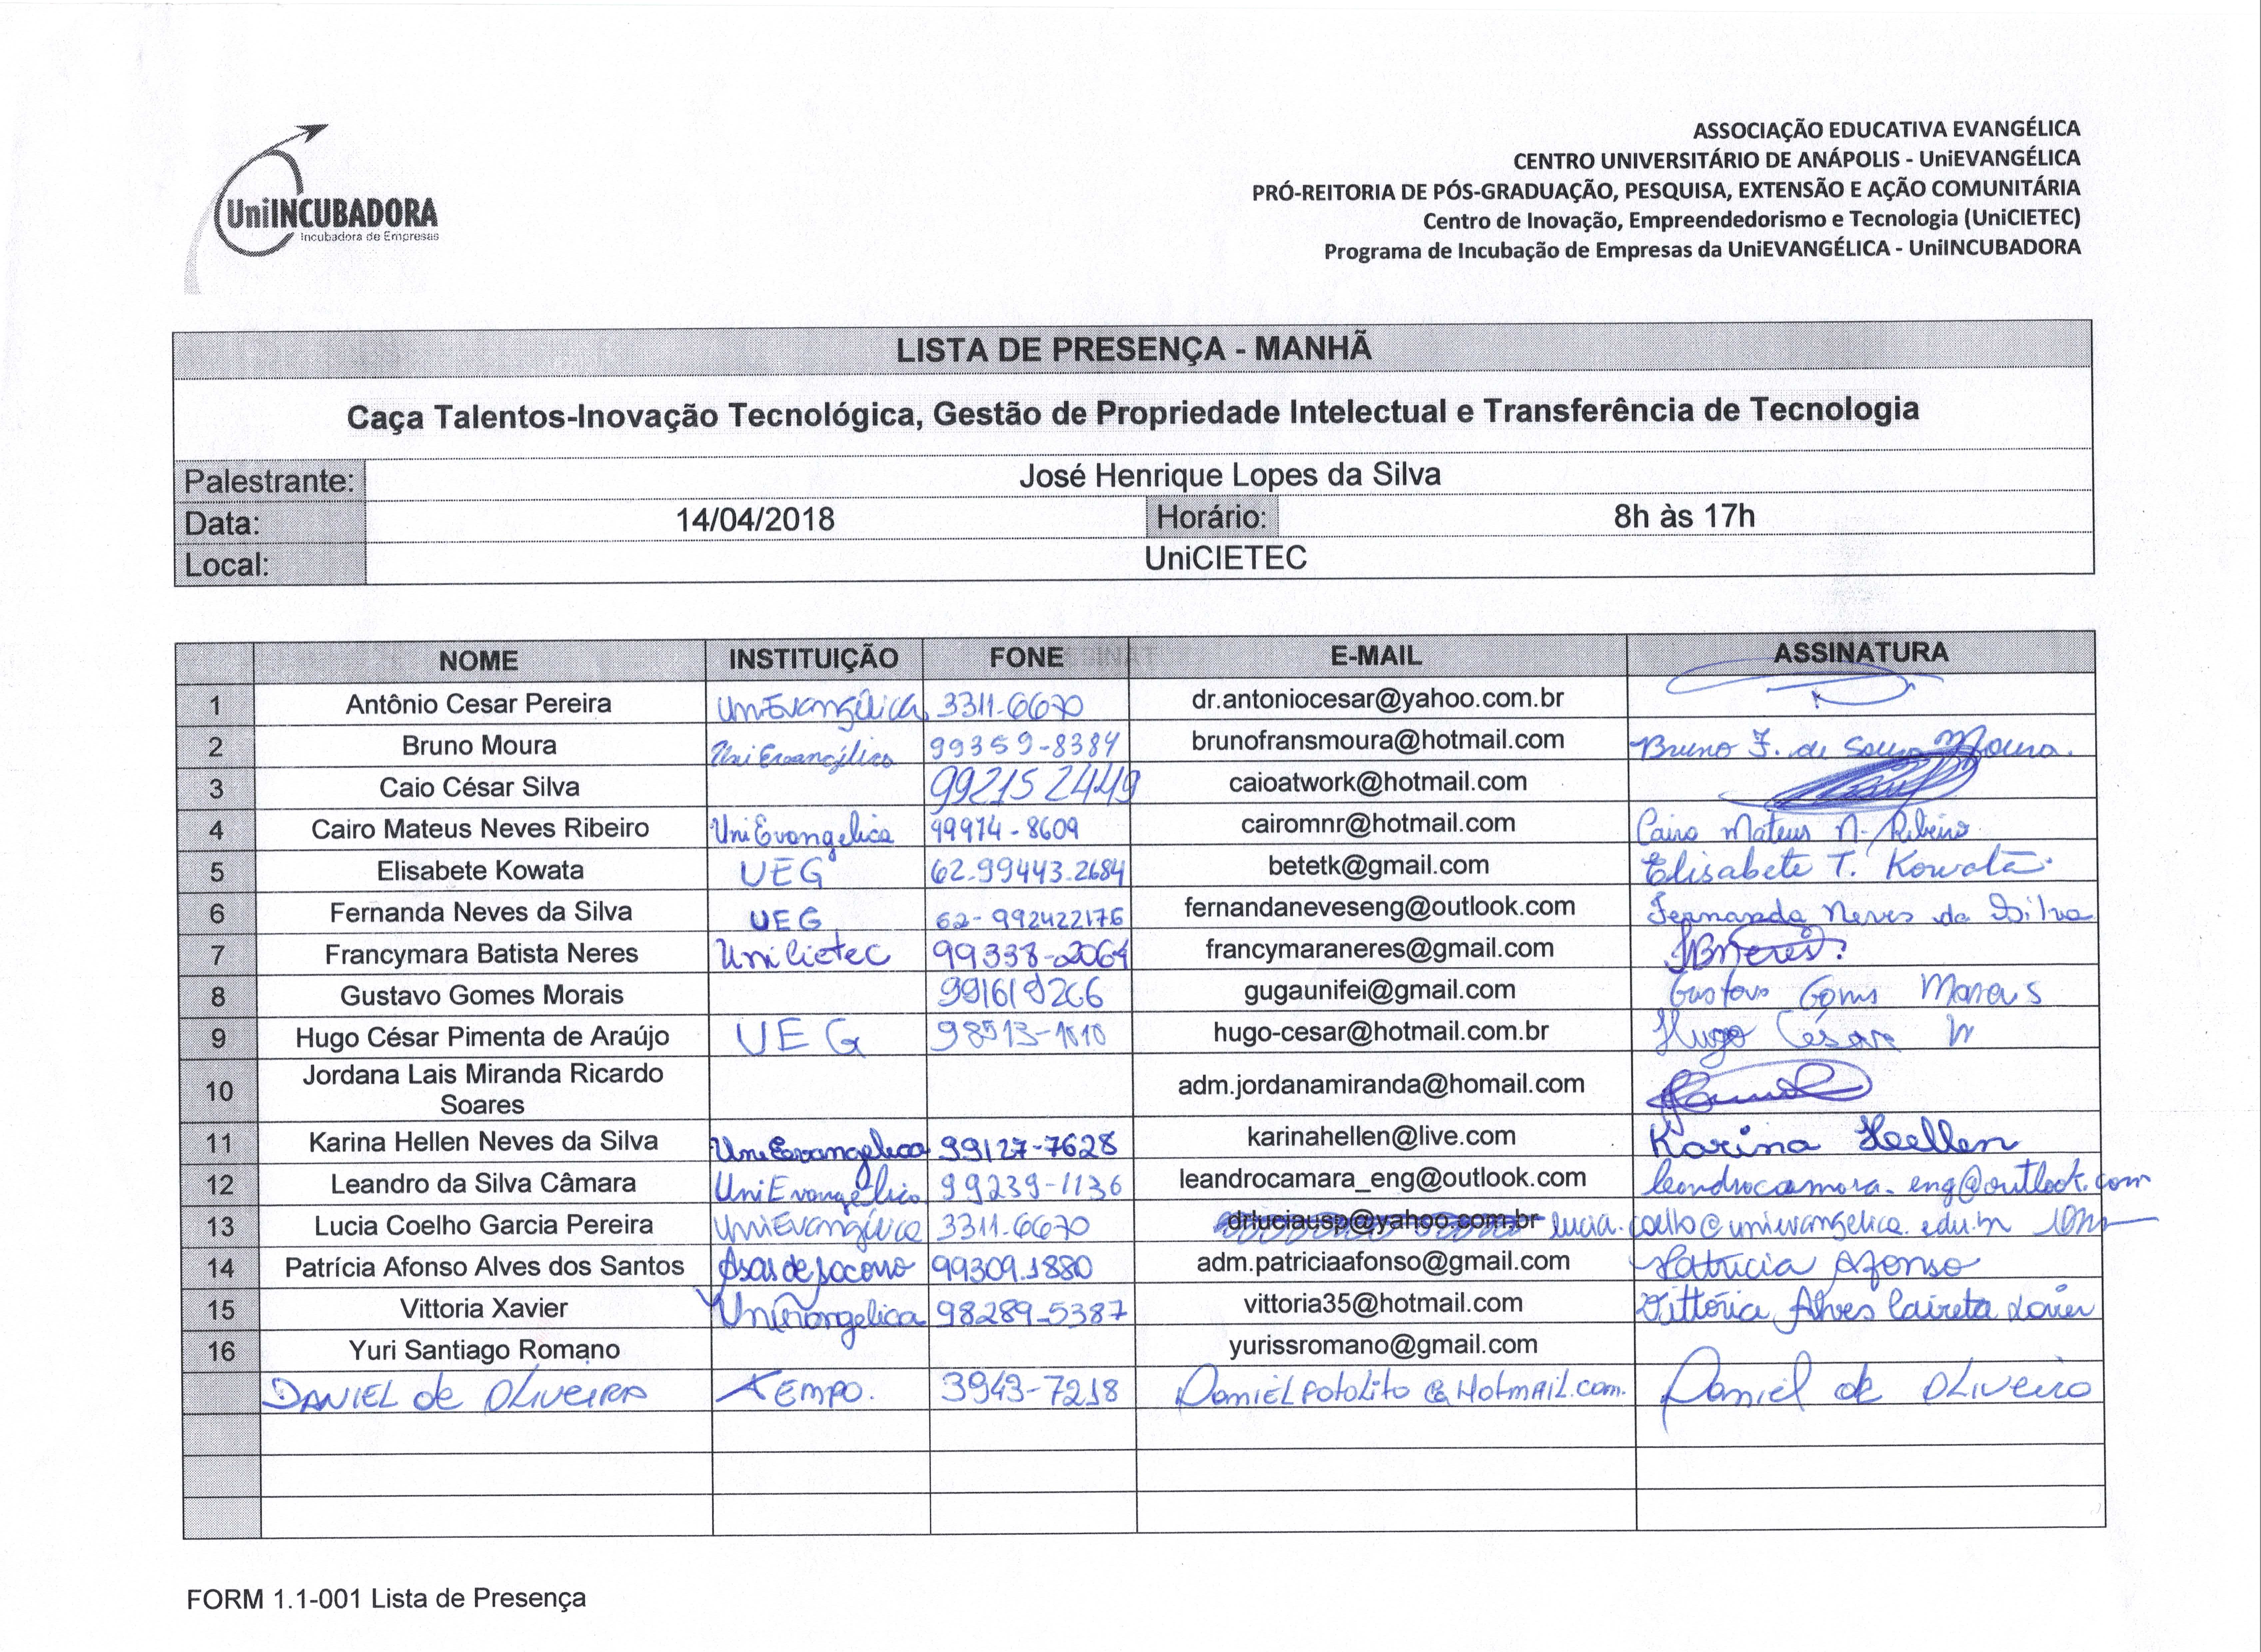 UniINCUBADORA
Incubadora de Empresas
ASSOCIAÇÃO EDUCATIVA EVANGÉLICA
CENTRO UNIVERSITÁRIO DE ANÁPOLIS - UniEVANGÉLICA
PRÓ-REITORIA DE PÓS-GRADUAÇÃO, PESQUISA, EXTENSÃO E AÇÃO COMUNITÁRIA
Centro de Inovação, Empreendedorismo e Tecnologia (UniCIETEC)
Programa de Incubação de Empresas da UniEVANGÉLICA - UniINCUBADORA
LISTA DE PRESENÇA - MANHÃ
Caça Talentos-Inovação Tecnológica, Gestão de Propriedade Intelectual e Transferência de Tecnologia
Palestrante: José Henrique Lopes da Silva
Data: 14/04/2018 Horário: 8h às 17h
Local: UniCIETEC
NOME INSTITUIÇÃO FONE E-MAIL ASSINATURA
1 Antônio Cesar Pereira UniEvangélica 3311-6670 dr.antoniocesar@yahoo.com.br
2 Bruno Moura UniEvangélica 99359-8384 brunofransmoura@hotmail.com Bruno F. de Souza Moura.
3 Caio César Silva 99215 2449 caioatwork@hotmail.com
4 Cairo Mateus Neves Ribeiro UniEvangelica 99974-8609 cairomnr@hotmail.com Cairo Mateus N. Ribeiro
5 Elisabete Kowata UEG 62-99443-2684 betetk@gmail.com Elisabete T. Kowata
6 Fernanda Neves da Silva UEG 62-992422176 fernandaneveseng@outlook.com Fernanda Neves da Silva
7 Francymara Batista Neres UniCietec 99338-2064 francymaraneres@gmail.com
8 Gustavo Gomes Morais gugaunifei@gmail.com Gustavo Gomes Morais
9 Hugo César Pimenta de Araújo UEG 98513-1010 hugo-cesar@hotmail.com.br Hugo César
10 Jordana Lais Miranda Ricardo
Soares adm.jordanamiranda@homail.com
11 Karina Hellen Neves da Silva UniEvangelica 99127-7628 karinahellen@live.com Karina Hellen
12 Leandro da Silva Câmara UniEvangélica 99239-1136 leandrocamara_eng@outlook.com leandrocamara_eng@outlook.com
13 Lucia Coelho Garcia Pereira UniEvangélica 3311-6670 drluciausp@yahoo.com.br lucia.coelho@unievangelica.edu.br
14 Patrícia Afonso Alves dos Santos Asas de Socorro 99309.1880 adm.patriciaafonso@gmail.com Patricia Afonso
15 Vittoria Xavier UniEvangelica 98289-5387 vittoria35@hotmail.com Vittória Alves Xavier
16 Yuri Santiago Romano yurissromano@gmail.com
DANIEL de OLIVEIRA TEMPO. 3943-7218 DANIELpotolito@HotMAIL.com. Daniel de Oliveira
FORM 1.1-001 Lista de Presença